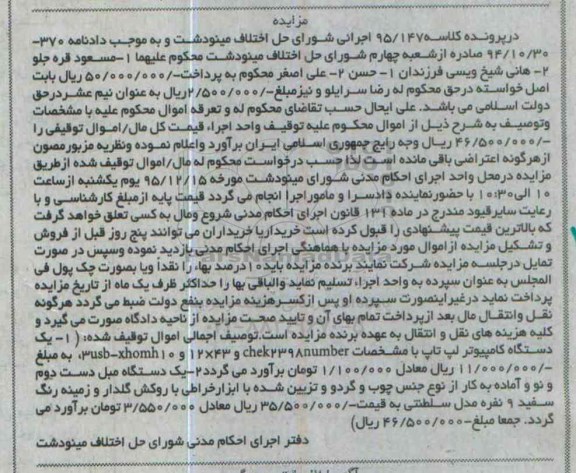 مزایده
درپرونده کلاسه۹۵/۱۴۷ اجرائی شورای حل اختلاف مینودشت و به موجب دادنامه ۳۷۰-
۹۴/۱۰/۳۰ صادره ازشعبه چهارم شورای حل اختلاف مینودشت محکوم علیهما ۱-مسعود قره جلو
۲- هانی شیخ ویسی فرزندان ۱- حسن ۲- علی اصغر محکوم به پرداخت-/۵۰/۰۰۰/۰۰۰ ریال بابت
اصل خواسته درحق محکوم له رضا سرایلو و نیزمبلغ-/۲/۵۰۰/۰۰۰ریال به عنوان نیم عشردرحق
دولت اسلامی می باشد. علی ایحال حسب تقاضای محکوم له و تعرفه اموال محکوم علیه با مشخصات
وتوصیف به شرح ذیل از اموال محکوم علیه توقیف واحد اجراء قیمت کل مال/اموال توقیفی را
-/۴۶/۵۰۰/۰۰۰ ریال وجه رایج جمهوری اسلامی ایران برآورد واعلام نموده ونظریه مزبورمصون
ازهرگونه اعتراضی باقی مانده است لذا حسب درخواست محکوم له مال/اموال توقیف شده ازطریق
مزایده درمحل واحد اجرای احکام مدنی شورای مینودشت مورخه ۹۵/۱۲/۱۵ یوم یکشنبه ازساعت
۱۰ الی۱۰:۳۰ با حضورنماینده دادسرا و ماموراجرا انجام می گردد قیمت پایه ازمبلغ کارشناسی و با
رعایت سایرقیود مندرج در ماده ۱۳۱ قانون اجرای احکام مدنی شروع ومال به کسی تعلق خواهد گرفت
که بالاترین قیمت پیشنهادی را قبول کرده است خریداریا خریداران می توانند پنج روز قبل از فروش
و تشکیل مزایده ازاموال مورد مزایده با هماهنگی اجرای احکام مدنی بازدید نموده وسپس در صورت
تمایل درجلسه مزایده شرکت نمایند برنده مزایده باید ۱۰درصد بهاء را نقداً ویا بصورت چک پول فی
المجلس به عنوان سپرده به واحد اجراء تسلیم نماید والباقی بها را حداکثر ظرف یک ماه از تاریخ مزایده
پرداخت نماید درغیراینصورت سپرده او پس ازکسرهزینه مزایده بنفع دولت ضبط می گردد هرگونه
نقل وانتقال مال بعد ازپرداخت تمام بهای آن و تایید صحت مزایده از ناحیه دادگاه صورت می گیرد و
کلیه هزینه های نقل و انتقال به عهده برنده مزایده است.توصیف اجمالی اموال توقیف شده: ( ۱- یک
دستگاه کامپیوتر لپ تاپ با مشخصات chek۲۳۹۸number و ۱۲×۴۳ و ۱۰ ۳usb-xhomh، به مبلغ
-/۱۱/۰۰۰/۰۰۰ ریال معادل ۱/۱۰۰/۰۰۰ تومان برآورد می گردد۲-یک دستگاه مبل دست دوم
و نو و آماده به کار از نوع جنس چوب و گردو و تزیین شده با ابزارخراطی با روکش گلدار و زمینه رنگ
سفید ۹ نفره مدل سلطنتی به قیمت-/۳۵/۵۰۰/۰۰۰ ریال معادل ۳/۵۵۰/۰۰۰ تومان برآورد می
گردد. جمعا مبلغ-۴۶/۵۰۰/۰۰۰ ریال)
دفتر اجرای احکام مدنی شورای حل اختلاف مینودشت